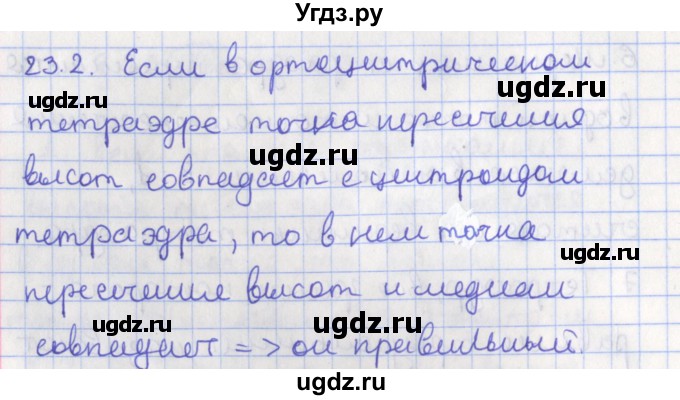 Угдз.ру
23.2. Если в ортоцентрическом
ugdz.ru
ugdz.ru
тетраэдре точка пересечения
ugdz.ru
высот совпадает с центроидом
тетраэдра, то в нем точка
ugdz.ru
пересечения высот и медиан
ugdz.ru
ugdz.ru
совпадает => он правильный.
ugdz.ru